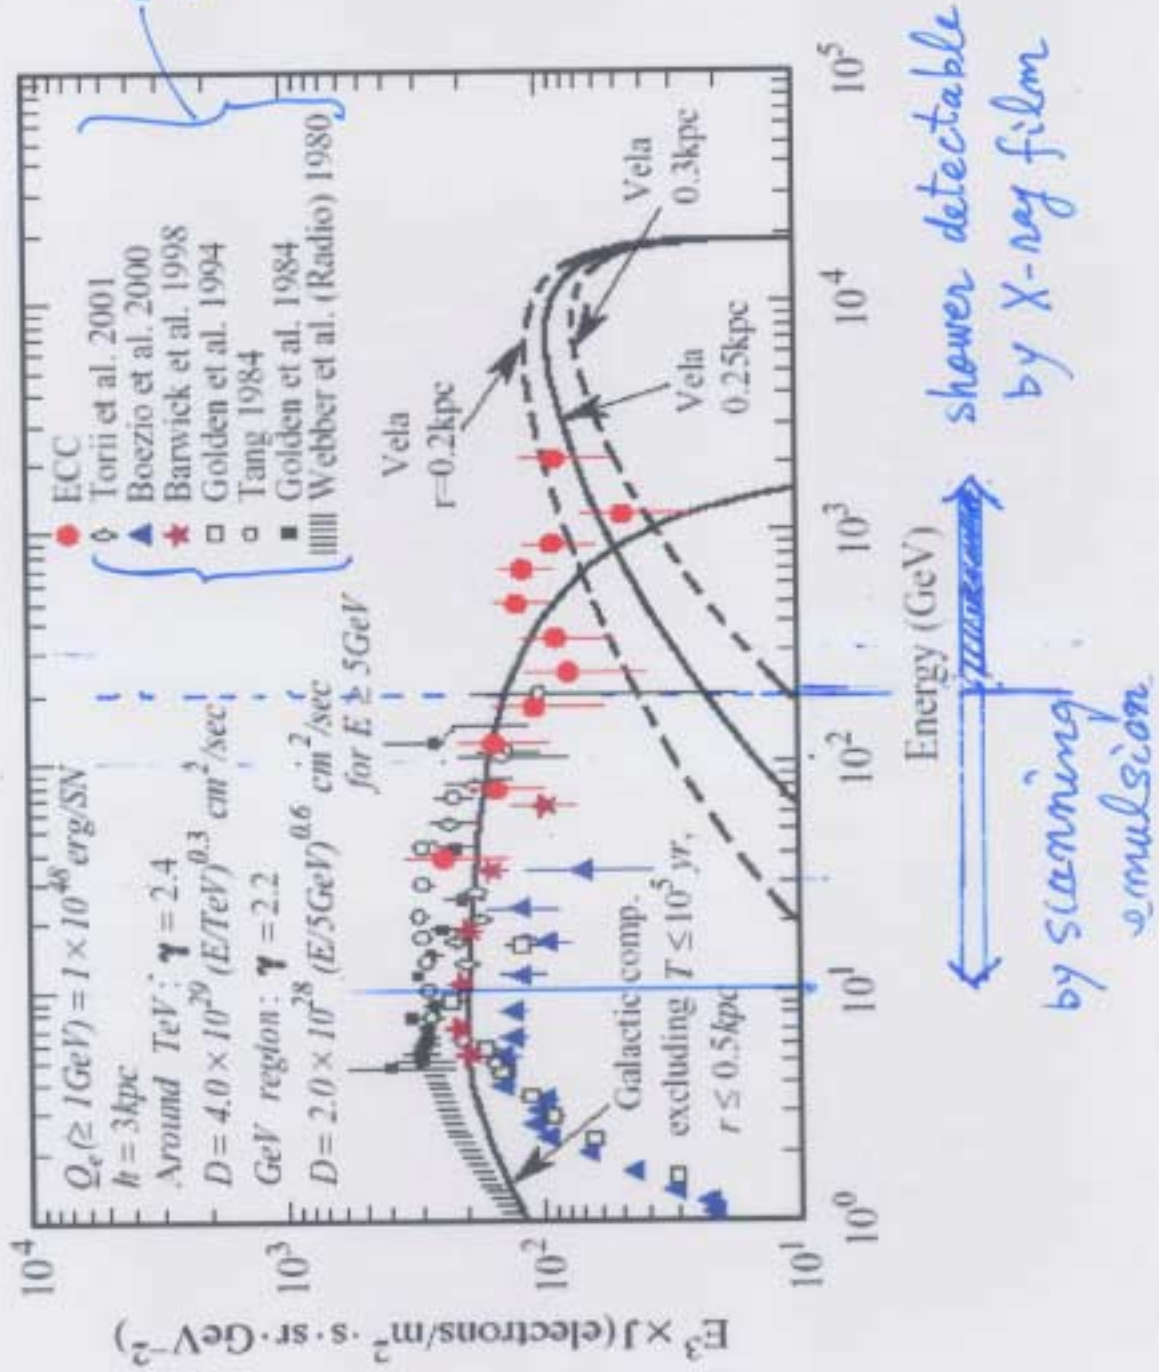 10⁴
10³
10²
10¹
E³ × J (electrons/m²·s·sr·GeV⁻²)
Qₑ(≥ 1GeV) = 1 × 10⁴⁸ erg/SN
h = 3kpc
Around TeV : γ = 2.4
D = 4.0 × 10²⁹ (E/TeV)^0.3 cm²/sec
GeV region : γ = 2.2
D = 2.0 × 10²⁸ (E/5GeV)^0.6 cm²/sec
for E ≥ 5GeV
ECC
Torii et al. 2001
Boezio et al. 2000
Barwick et al. 1998
Golden et al. 1994
Tang 1984
Golden et al. 1984
Webber et al. (Radio) 1980
Vela
r=0.2kpc
Vela
0.3kpc
Vela
0.25kpc
Galactic comp.
excluding T ≤ 10⁵ yr,
r ≤ 0.5kpc
10⁰
10¹
10²
10³
10⁴
10⁵
Energy (GeV)
by scanning
emulsion
shower detectable
by X-ray film